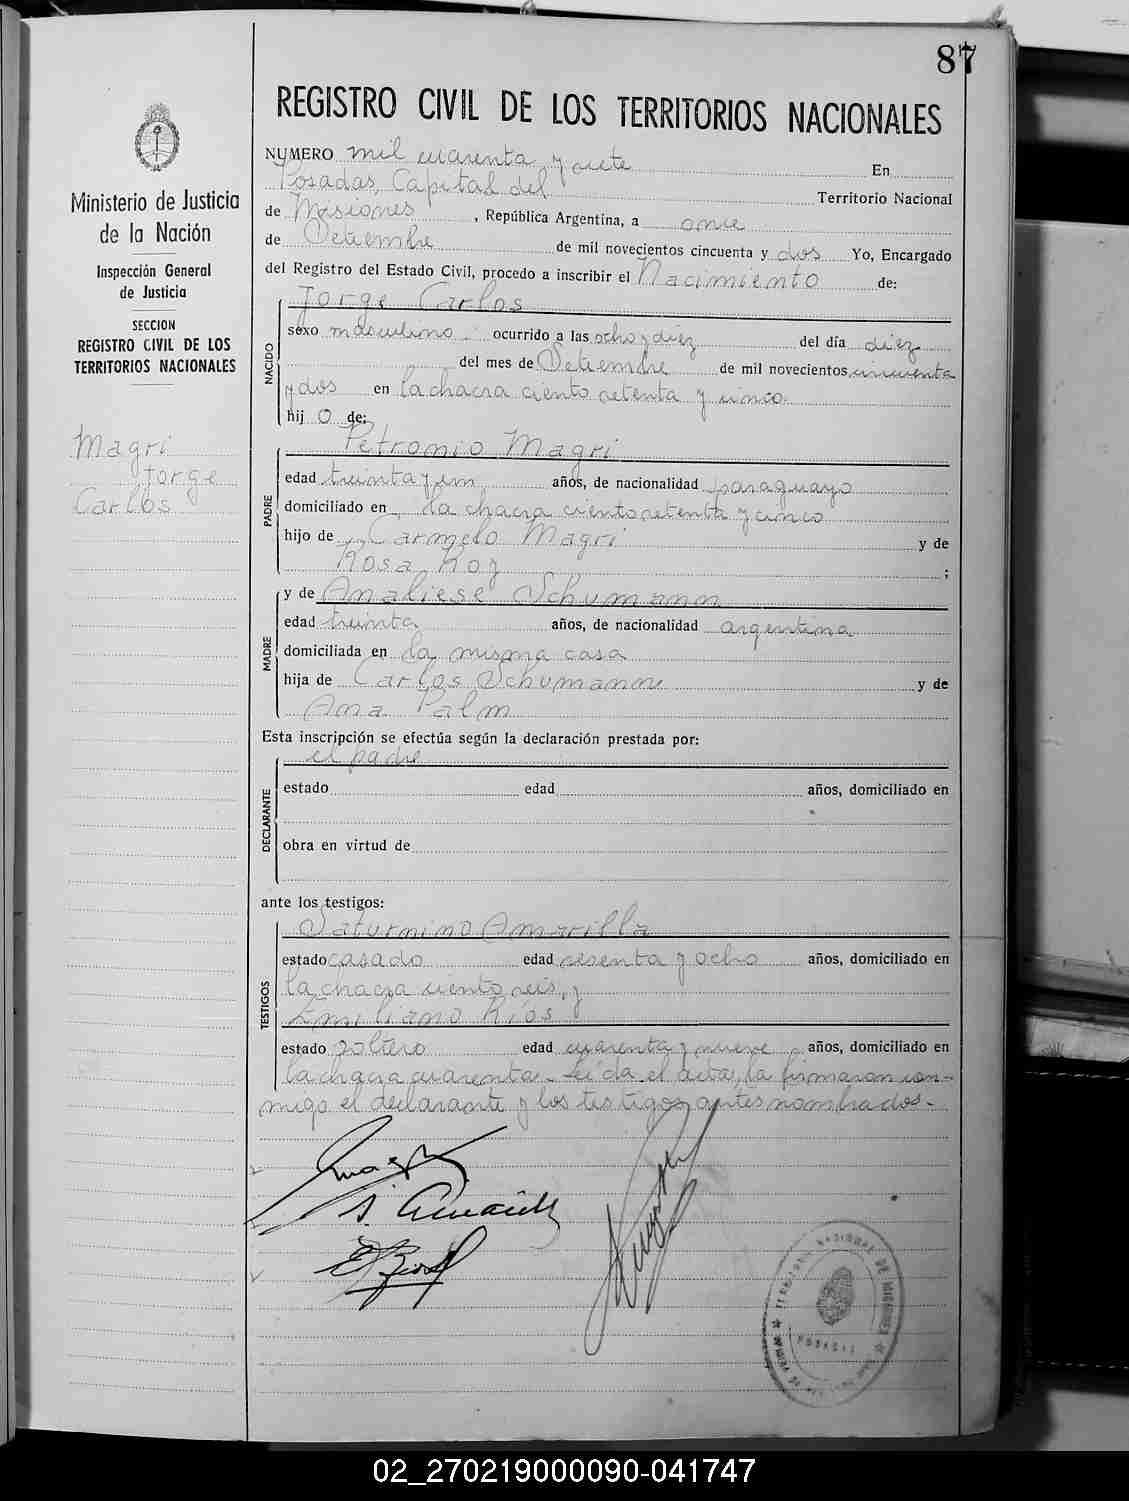 87
REGISTRO CIVIL DE LOS TERRITORIOS NACIONALES
Ministerio de Justicia
de la Nación
Inspección General
de Justicia
SECCION
REGISTRO CIVIL DE LOS
TERRITORIOS NACIONALES
Magri
Jorge
Carlos
NUMERO mil cuarenta y siete En
Posadas, Capital del Territorio Nacional
de Misiones, República Argentina, a once
de Setiembre de mil novecientos cincuenta y dos Yo, Encargado
del Registro del Estado Civil, procedo a inscribir el Nacimiento de:
NACIDO
Jorge Carlos
sexo masculino. ocurrido a las ocho y diez del día diez
del mes de Setiembre de mil novecientos cincuenta
y dos en la chacra ciento setenta y cinco.
hij o de:
PADRE
Petronio Magri
edad treinta y un años, de nacionalidad paraguayo
domiciliado en la chacra ciento setenta y cinco
hijo de Carmelo Magri y de
Rosa ;
MADRE
y de Analiese Schumann
edad treinta años, de nacionalidad argentina
domiciliada en la misma casa
hija de Carlos Schumann y de
Ana Palm
Esta inscripción se efectúa según la declaración prestada por:
DECLARANTE
el padre
estado edad años, domiciliado en
obra en virtud de
ante los testigos:
TESTIGOS
Saturnino Amarilla
estado casado edad sesenta y ocho años, domiciliado en
la chacra ciento seis, y
Emiliano Ríos
estado soltero edad cuarenta y nueve años, domiciliado en
la chacra cuarenta. Leída el acta, la firmaron con-
migo el declarante y los testigos antes nombrados.-
Magri
S. Amarilla
E. Rios
TERRITORIO NACIONAL DE MISIONES
POSADAS
02_270219000090-041747